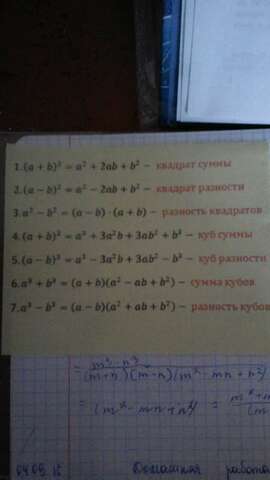 1.(a + b)² = a² + 2ab + b² – квадрат суммы
2.(a – b)² = a² – 2ab + b² – квадрат разности
3.a² – b² = (a – b) · (a + b) – разность квадратов
4.(a + b)³ = a³ + 3a²b + 3ab² + b³ – куб суммы
5.(a – b)³ = a³ – 3a²b + 3ab² – b³ – куб разности
6.a³ + b³ = (a + b)(a² – ab + b²) – сумма кубов
7.a³ – b³ = (a – b)(a² + ab + b²) – разность кубов
(m+n)(m-n)(m² - mn + n²)
= (m² - mn + n²) =
Домашняя работа